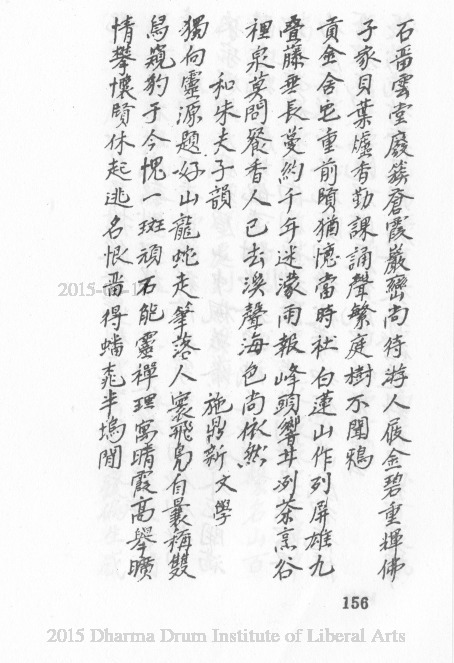 石畱雲堂廢蘚蒼霞巖巒尚待游人屐金碧重輝佛
子家貝葉爐香勤課誦聲繁庭樹不聞鴉
黃金舍宅重前賢猶憶當時社白蓮山作列屏雄九
疊藤垂長蔓約千年迷濛雨報峰頭響井冽茶烹谷
裡泉莫問餐香人已去溪聲海色尚依然
和朱夫子韻
施鼎新文學
獨向靈源題好山龍蛇走筆落人寰飛鳧自曩稱雙
舃窺豹于今愧一斑頑石能靈禪理寓晴霞高舉曠
情攀懷賢休起逃名恨畱得蟠桃半塢閒
156
2015 Dharma Drum Institute of Liberal Arts